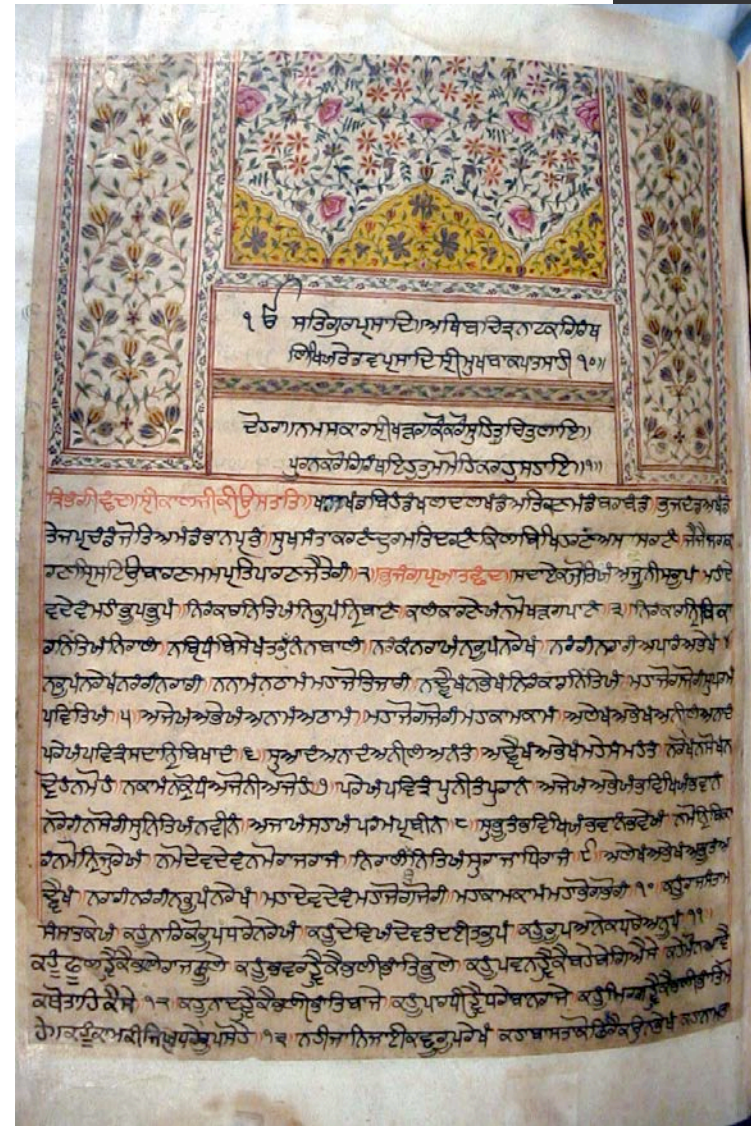 ੴ ਸਤਿਗੁਰਪ੍ਰਸਾਦਿ॥ਅਥਬਚਿਤ੍ਰਨਾਟਕਗਿਰੰਥ
ਲਿਖਿਅਤੇਤਵਪ੍ਰਸਾਦਿ॥ਸ੍ਰੀਮੁਖਬਾਕਪਤਸਾਹੀ ੧੦॥
ਦੋਹਰਾ॥ਨਮਸਕਾਰਸ੍ਰੀਖੜਗਕੋਕਰੌਸੁਹਿਤੁਚਿਤੁਲਾਇ॥
ਪੂਰਨਕਰੌਗਿਰੰਥਇਹੁਤੁਮਮੋਹਿਕਰਹੁਸਹਾਇ॥੧॥
ਤ੍ਰਿਭੰਗੀਛੰਦ॥ਸ੍ਰੀਕਾਲਜੀਕੀਉਸਤਤਿ॥ਖਗਖੰਡਬਿਹੰਡੰਖਲਦਲਖੰਡੰਅਤਿਰਣਮੰਡੰਬਰਬੰਡੰ॥ਭੁਜਦੰਡਅਖੰਡੰ
ਤੇਜਪ੍ਰਚੰਡੰਜੋਤਿਅਮੰਡੰਭਾਨਪ੍ਰਭੰ॥ਸੁਖਸੰਤਾਕਰਣੰਦੁਰਮਤਿਦਰਣੰਕਿਲਬਿਖਿਹਰਣੰਅਸਿਸਰਣੰ॥ਜੈਜੈਜਗਕਾ
ਰਣਸ੍ਰਿਸਟਿਉਬਾਰਣਮਮਪ੍ਰਤਿਪਾਰਣਜੈਤੇਗੰ॥੨॥ਭੁਜੰਗਪ੍ਰਯਾਤਛੰਦ॥ਸਦਾਏਕਜੋਤਿਯੰਅਜੂਨੀਸਰੂਪੰ॥ਮਹਾਦੇ
ਵਦੇਵੰਮਹਾਭੂਪਭੂਪੰ॥ਨਿਰੰਕਾਰਨਿਤਿਯੰਨਿਰੂਪੰਨ੍ਰਿਬਾਣੰ॥ਕਲੰਕਾਰਣੇਯੰਨਮੋਖੜਗਪਾਣੰ॥੩॥ਨਿਰੰਕਾਰਨ੍ਰਿਬਿਕਾ
ਰਨਿਤਿਯੰਨਿਰਾਲੰ॥ਨਬ੍ਰਿਧੰਬਿਸੇਖੰਨਤਰੁਨੰਨਬਾਲੰ॥ਨਰੰਕੰਨਰਾਯੰਨਰੂਪੰਨਰੇਖੰ॥ਨਰੰਗੰਨਰਾਗੰਅਪਾਰੰਅਭੇਖੰ॥੪
ਨਰੂਪੰਨਰੇਖੰਨਰੰਗੰਨਰਾਗੰ॥ਨਨਾਮੰਨਠਾਮੰਮਹਾਜੋਤਿਜਾਗੰ॥ਨਦ੍ਵੈਖੰਨਭੇਖੰਨਿਰੰਕਾਰਨਿਤਿਯੰ॥ਮਹਾਜੋਗਜੋਗੰਸੁਪਰਮੰ
ਪਵਿਤਿਯੰ॥੫॥ਅਜੇਯੰਅਭੇਯੰਅਨਾਮੰਅਠਾਮੰ॥ਮਹਾਜੋਗਜੋਗੰਮਹਾਕਾਮਕਾਮੰ॥ਅਲੇਖੰਅਭੇਖੰਅਨੀਲੰਅਨਾਦੰ
ਪਰੇਯੰਪਵਿਤ੍ਰੰਸਦਾਨ੍ਰਿਬਿਖਾਦੰ॥੬॥ਸੁਆਦੰਅਨਾਦੰਅਨੀਲੰਅਨੰਤੰ॥ਅਦ੍ਵੈਖੰਅਭੇਖੰਮਹੇਸੰਮਹੰਤੰ॥ਨਰੋਖੰਨਸੋਖੰਨ
ਦ੍ਰੋਹੰਨਮੋਹੰ॥ਨਕਾਮੰਨਕ੍ਰੋਧੰਅਜੋਨੀਅਜੋਹੰ॥੭॥ਪਰੇਯੰਪਵਿਤ੍ਰੰਪੁਨੀਤੰਪੁਰਾਨੰ॥ਅਜੇਯੰਅਭੇਯੰਭਵਿਖਿਯੰਭਵਾਨੰ
ਨਰੋਗੰਨਸੋਗੰਸੁਨਿਤਿਯੰਨਵੀਨੰ॥ਅਜਾਯੰਸਹਾਯੰਪਰਮਪ੍ਰਬੀਨੰ॥੮॥ਸੁਭੂਤੰਭਵਿਖਿਯੰਭਵਾਨੰਭਵੇਯੰ॥ਨਮੋਨ੍ਰਿਬਿਕਾ
ਰੰਨਮੋਨ੍ਰਿਜੁਰੇਯੰ॥ਨਮੋਦੇਵਦੇਵੰਨਮੋਰਾਜਰਾਜੰ॥ਨਿਰਾਲੰਨਿਤਿਯੰਸੁਰਾਜਾਧਿਰਾਜੰ॥੯॥ਅਲੇਖੰਅਭੇਖੰਅਭੂਤੰਅ
ਦ੍ਵੈਖੰ॥ਨਰਾਗੰਨਰੰਗੰਨਰੂਪੰਨਰੇਖੰ॥ਮਹਾਦੇਵਦੇਵੰਮਹਾਜੋਗਜੋਗੰ॥ਮਹਾਕਾਮਕਾਮੰਮਹਾਭੋਗਭੋਗੰ॥੧੦॥ਕਹੂੰਰਾਜਸੰਤਾਮ
ਸੰਸਾਤਕੇਯੰ॥ਕਹੂੰਨਾਰਿਕੋਰੂਪਧਾਰੇਨਰੇਯੰ॥ਕਹੂੰਦੇਵਿਯੰਦੇਵਤੰਦਈਤਰੂਪੰ॥ਕਹੂੰਰੂਪਅਨੇਕਧਾਰੇਅਨੂਪੰ॥੧੧॥
ਕਹੂੰਫੂਲਹ੍ਵੈਕੈਭਲੇਰਾਜਫੂਲੇ॥ਕਹੂੰਭਵਰਹ੍ਵੈਕੈਭਲੀਭਾਤਿਭੂਲੇ॥ਕਹੂੰਪਵਨਹ੍ਵੈਕੈਬਹੇਬੇਗਿਐਸੇ॥ਕਹੇਮੋਨਆਵੈ
ਕਥੋਤਾਹਿਕੈਸੇ॥੧੨॥ਕਹੂੰਨਾਦਹ੍ਵੈਕੈਭਲੀਭਾਤਿਬਾਜੇ॥ਕਹੂੰਪਾਰਧੀਹ੍ਵੈਧਰੇਬਾਨਰਾਜੇ॥ਕਹੂੰਮ੍ਰਿਗਹ੍ਵੈਕੈਭਲੀਭਾਤਿਮੋ
ਹੇ॥ਕਹੂੰਕਾਮਕੀਜਿਉਧਰੇਰੂਪਸੋਹੇ॥੧੩॥ਨਹੀਜਾਨਿਜਾਈਕਛੂਰੂਪਰੇਖੰ॥ਕਹਾਬਾਸਤਾਕੋਫਿਰੈਕਉਨਭੇਖੰ॥ਕਹਾਨਾਮਤਾ